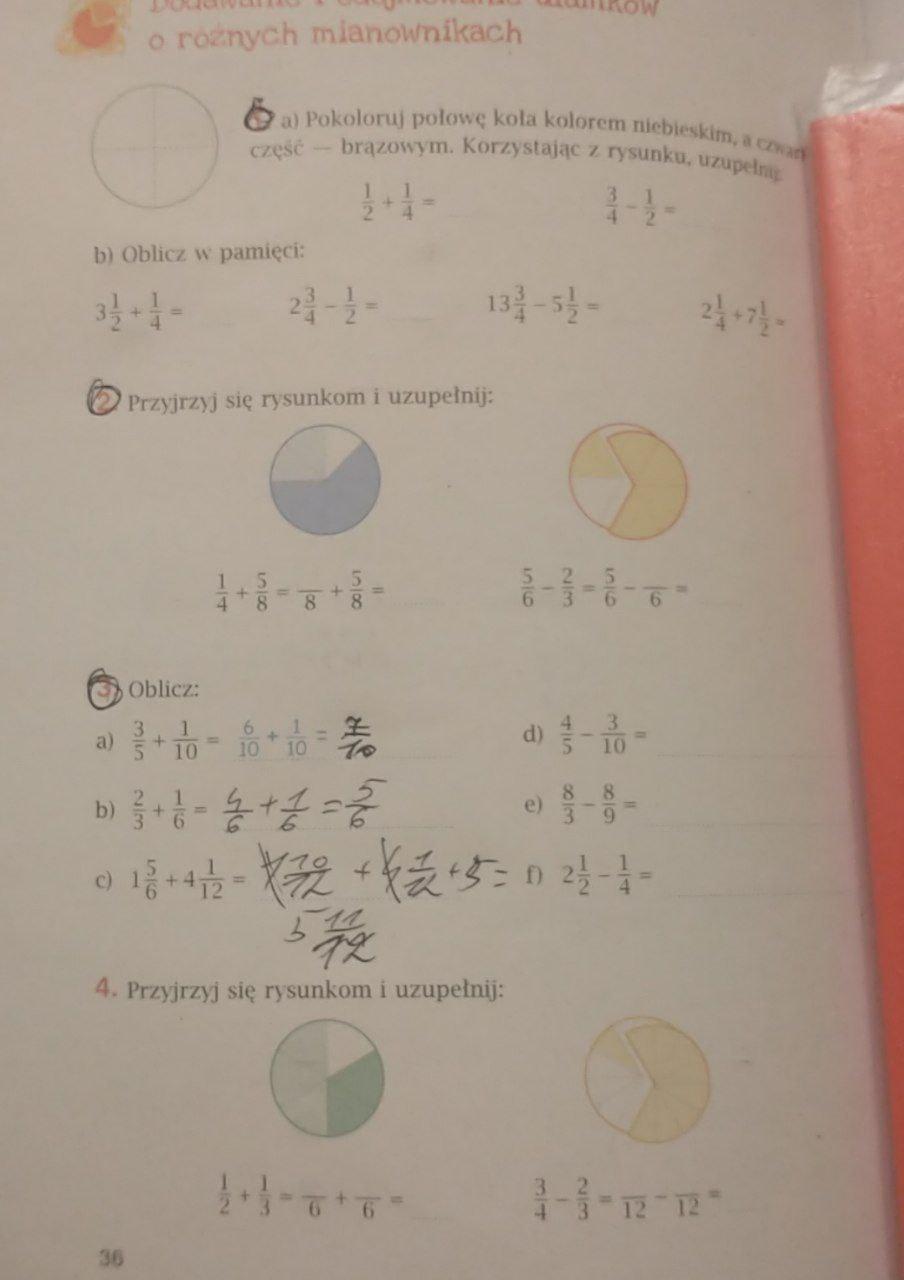 Dodawanie i odejmowanie ułamków
o różnych mianownikach
a) Pokoloruj połowę koła kolorem niebieskim, a czwartą
część — brązowym. Korzystając z rysunku, uzupełnij:
1/2 + 1/4 = 3/4 - 1/2 =
b) Oblicz w pamięci:
3 1/2 + 1/4 = 2 3/4 - 1/2 = 13 3/4 - 5 1/2 = 2 1/4 + 7 1/2 =
2. Przyjrzyj się rysunkom i uzupełnij:
1/4 + 5/8 = /8 + 5/8 = 5/6 - 2/3 = 5/6 - /6 =
3. Oblicz:
a) 3/5 + 1/10 = 6/10 + 1/10 = 7/10 d) 4/5 - 3/10 =
b) 2/3 + 1/6 = 4/6 + 1/6 = 5/6 e) 8/3 - 8/9 =
c) 1 5/6 + 4 1/12 = 10/12 + 1/12 + 5 = f) 2 1/2 - 1/4 =
5 11/12
4. Przyjrzyj się rysunkom i uzupełnij:
1/2 + 1/3 = /6 + /6 = 3/4 - 2/3 = /12 - /12 =
36